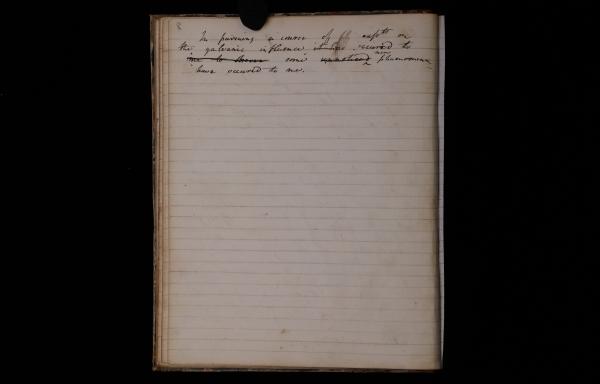 8
In pursuing a course of expts on
the galvanic influence, it has occured to
me to know some unnoticed new phænomena
have occured to me.